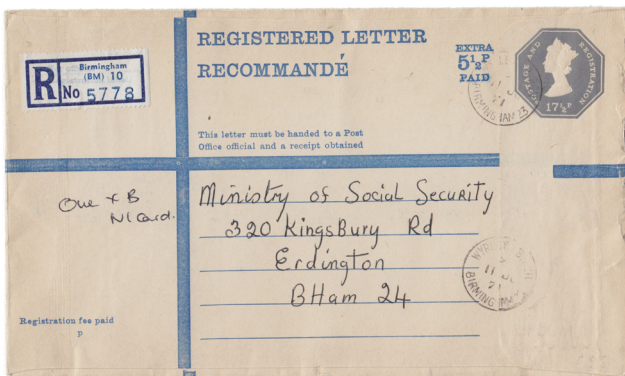 REGISTERED LETTER
RECOMMANDÉ
EXTRA
5½P
PAID
POSTAGE AND REGISTRATION
17½P
R
Birmingham
(BM) 10
No 5778
BIRMINGHAM 23
71
This letter must be handed to a Post
Office official and a receipt obtained
One x B
NI Card.
Ministry of Social Security
320 Kingsbury Rd
Erdington
BHam 24
11
71
BIRMINGHAM
Registration fee paid
p